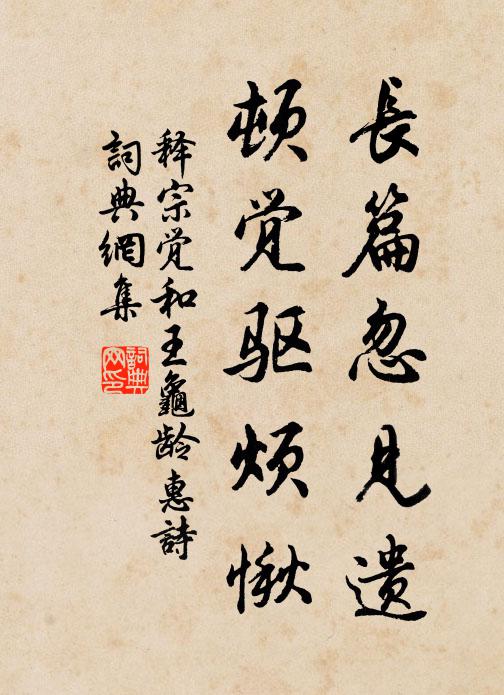 長篇忽見遗
頓觉驱烦愀
释宗觉和王龜龄惠詩
詞典網集
詞典网印